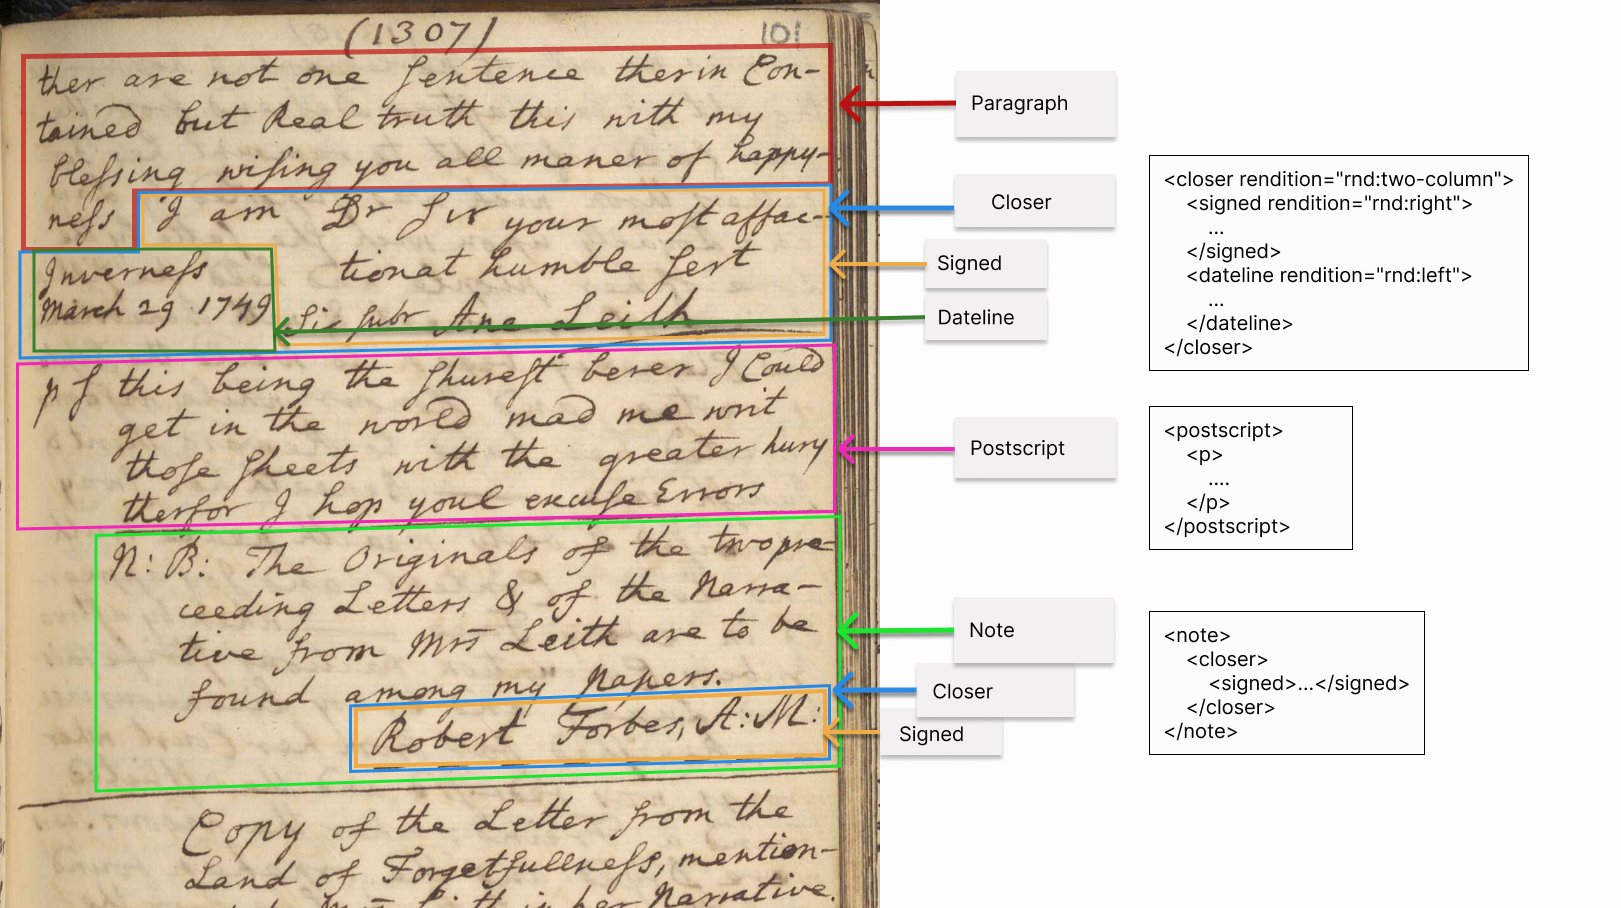 (1307)
101
ther are not one sentence therin Con-
tained but Real truth this with my
blessing wising you all maner of happy-
ness I am Dr Sir your most affac-
tionat humble sert
Inverness
March 29 1749
Sic subr Ane Leith
p s this being the shurest berer I Could
get in the world mad me writ
those sheets with the greater hury
therfor I hop youl excuse Errors
N: B: The Originals of the two pre-
ceeding Letters & of the Narra-
tive from Mrs Leith are to be
found among my Papers.
Robert Forbes, A: M:
Copy of the Letter from the
Land of Forgetfullness, mention-
Leith in her Narrative.
Paragraph
Closer
Signed
Dateline
Postscript
Note
Closer
Signed
<closer rendition="rnd:two-column">
<signed rendition="rnd:right">
...
</signed>
<dateline rendition="rnd:left">
...
</dateline>
</closer>
<postscript>
<p>
....
</p>
</postscript>
<note>
<closer>
<signed>...</signed>
</closer>
</note>